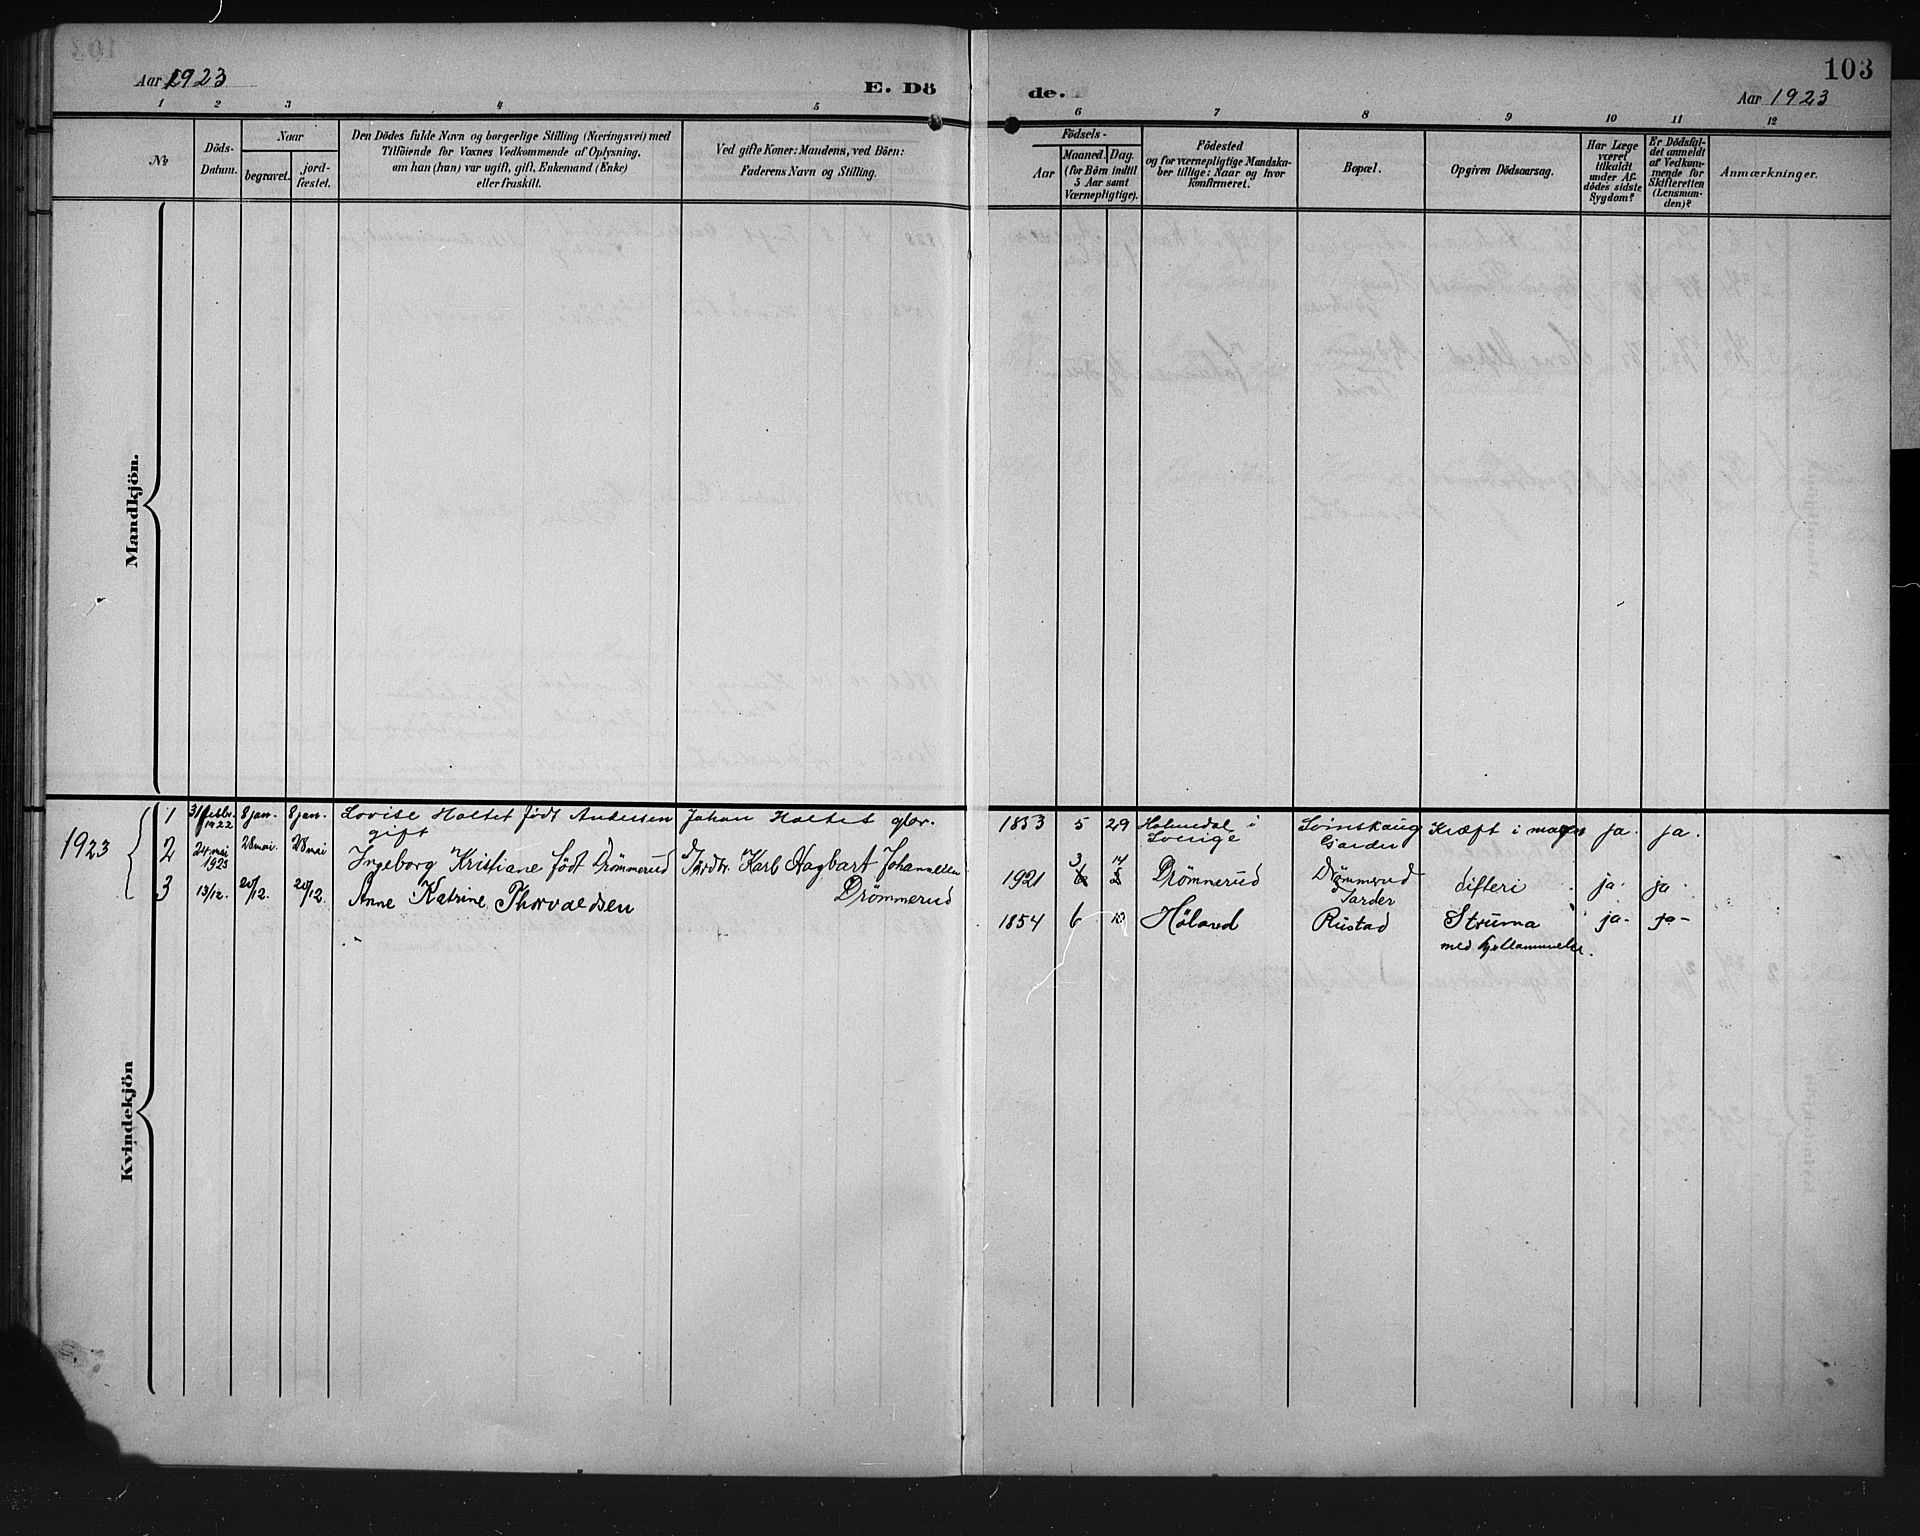 103
Aar 1923
E. Dö
de.
Aar 1923
1 2 3 4 5 6 7 8 9 10 11 12
No
Döds-
Datum.
Naar
begravet.
jord-
fæstet.
Den Dödes fulde Navn og borgerlige Stilling (Næringsvei) med
Tilföiende for Voxnes Vedkommende af Oplysning,
om han (hun) var ugift, gift, Enkemand (Enke)
eller fraskilt.
Ved gifte Koner: Mandens, ved Börn:
Faderens Navn og Stilling.
Födsels-
Aar
Maaned. Dag.
(for Börn indtil
5 Aar samt
Værnepligtige).
Födested
og for værnepligtige Mandska-
ber tillige: Naar og hvor
konfirmeret.
Bopæl.
Opgiven Dödsaarsag.
Har Læge
været
tilkaldt
under Af-
dödes sidste
Sygdom?
Er Dödsfal-
det anmeldt
af Vedkom-
mende for
Skifteretten
(Lensman-
den)?
Anmærkninger.
Mandkjön.
Kvindekjön
1923
1
1922
8 jan.
8 jan.
Lovise Holtet født Andersen
gift
Johan Holtet
1853 5 29
Sverige
Kræft i
ja.
ja.
2
24 mai
1923
28 mai.
28 mai
Ingeborg Kristiane født Drömmerud
Karl Hagbart
Drömmerud
1921
3 14
Drömnerud
Drömmerud
difteri
ja.
ja.
3
13/12.
20/12.
20/12.
Anne Katrine Thorvaldsen
1854 6
Høland
Rustad
Struma
med
ja-
ja-